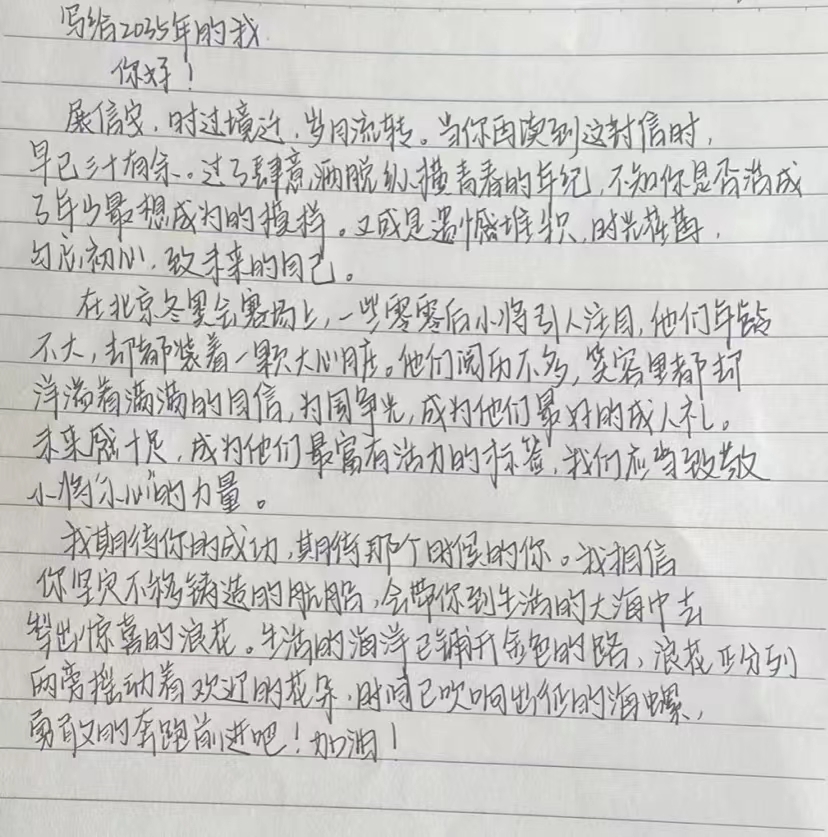 写给2035年的我
你好!
展信安,时过境迁,岁月流转。当你再读到这封信时,
早已三十有余。过了肆意洒脱纵横青春的年纪,不知你是否活成
了年少最想成为的模样。又或是遗憾堆积,时光荏苒,
勿忘初心,致未来的自己。
在北京冬奥会赛场上,一些零零后小将引人注目,他们年龄
不大,却都装着一颗大心脏。他们阅历不多,笑容里都却
洋溢着满满的自信,为国争光,成为他们最好的成人礼。
未来感十足,成为他们最富有活力的标签,我们应当致敬
小将"小心"的力量。
我期待你的成功,期待那个时候的你。我相信
你坚定不移铸造的航船,会带你到生活的大海中去
犁出惊喜的浪花。生活的海洋已铺开金色的路,浪花正分列
两旁摇动着欢迎的花朵,时间已吹响出征的海螺,
勇敢的奔跑前进吧!加油!